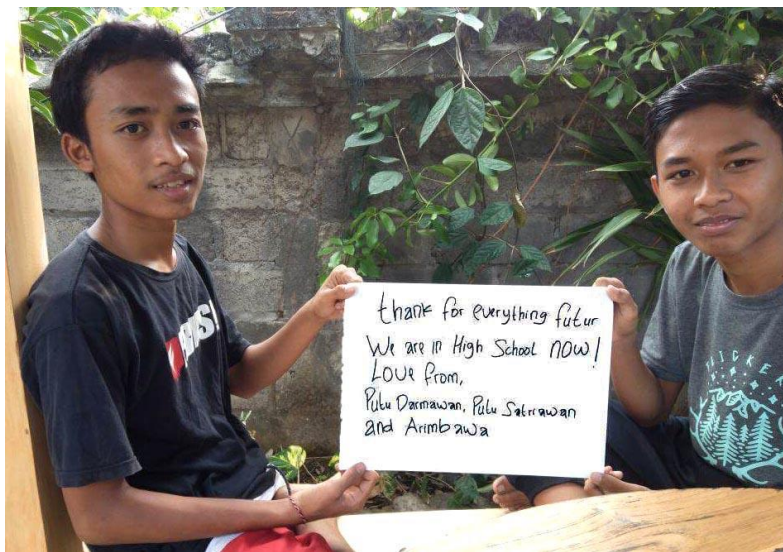 thank for everything futur
We are in High School NOW!
Love from,
Putu Darmawan, Putu Satriawan
and Arimbawa